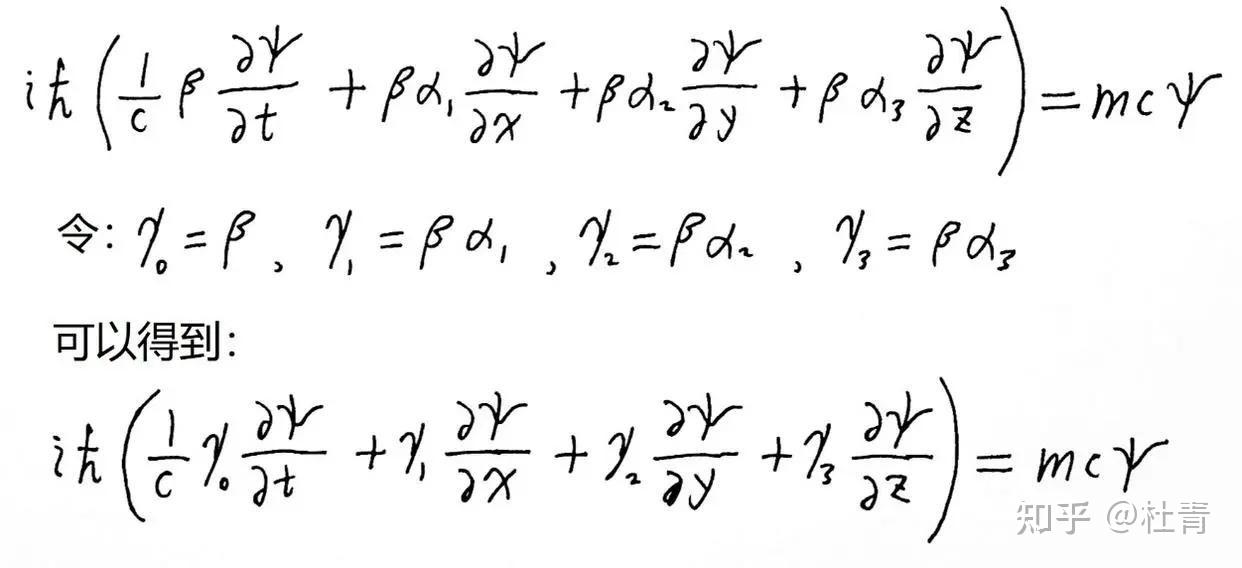 iħ(1/c β ∂ψ/∂t + βα₁ ∂ψ/∂x + βα₂ ∂ψ/∂y + βα₃ ∂ψ/∂z) = mcψ
令: γ₀ = β, γ₁ = βα₁, γ₂ = βα₂, γ₃ = βα₃
可以得到:
iħ(1/c γ₀ ∂ψ/∂t + γ₁ ∂ψ/∂x + γ₂ ∂ψ/∂y + γ₃ ∂ψ/∂z) = mcψ
知乎 @杜青